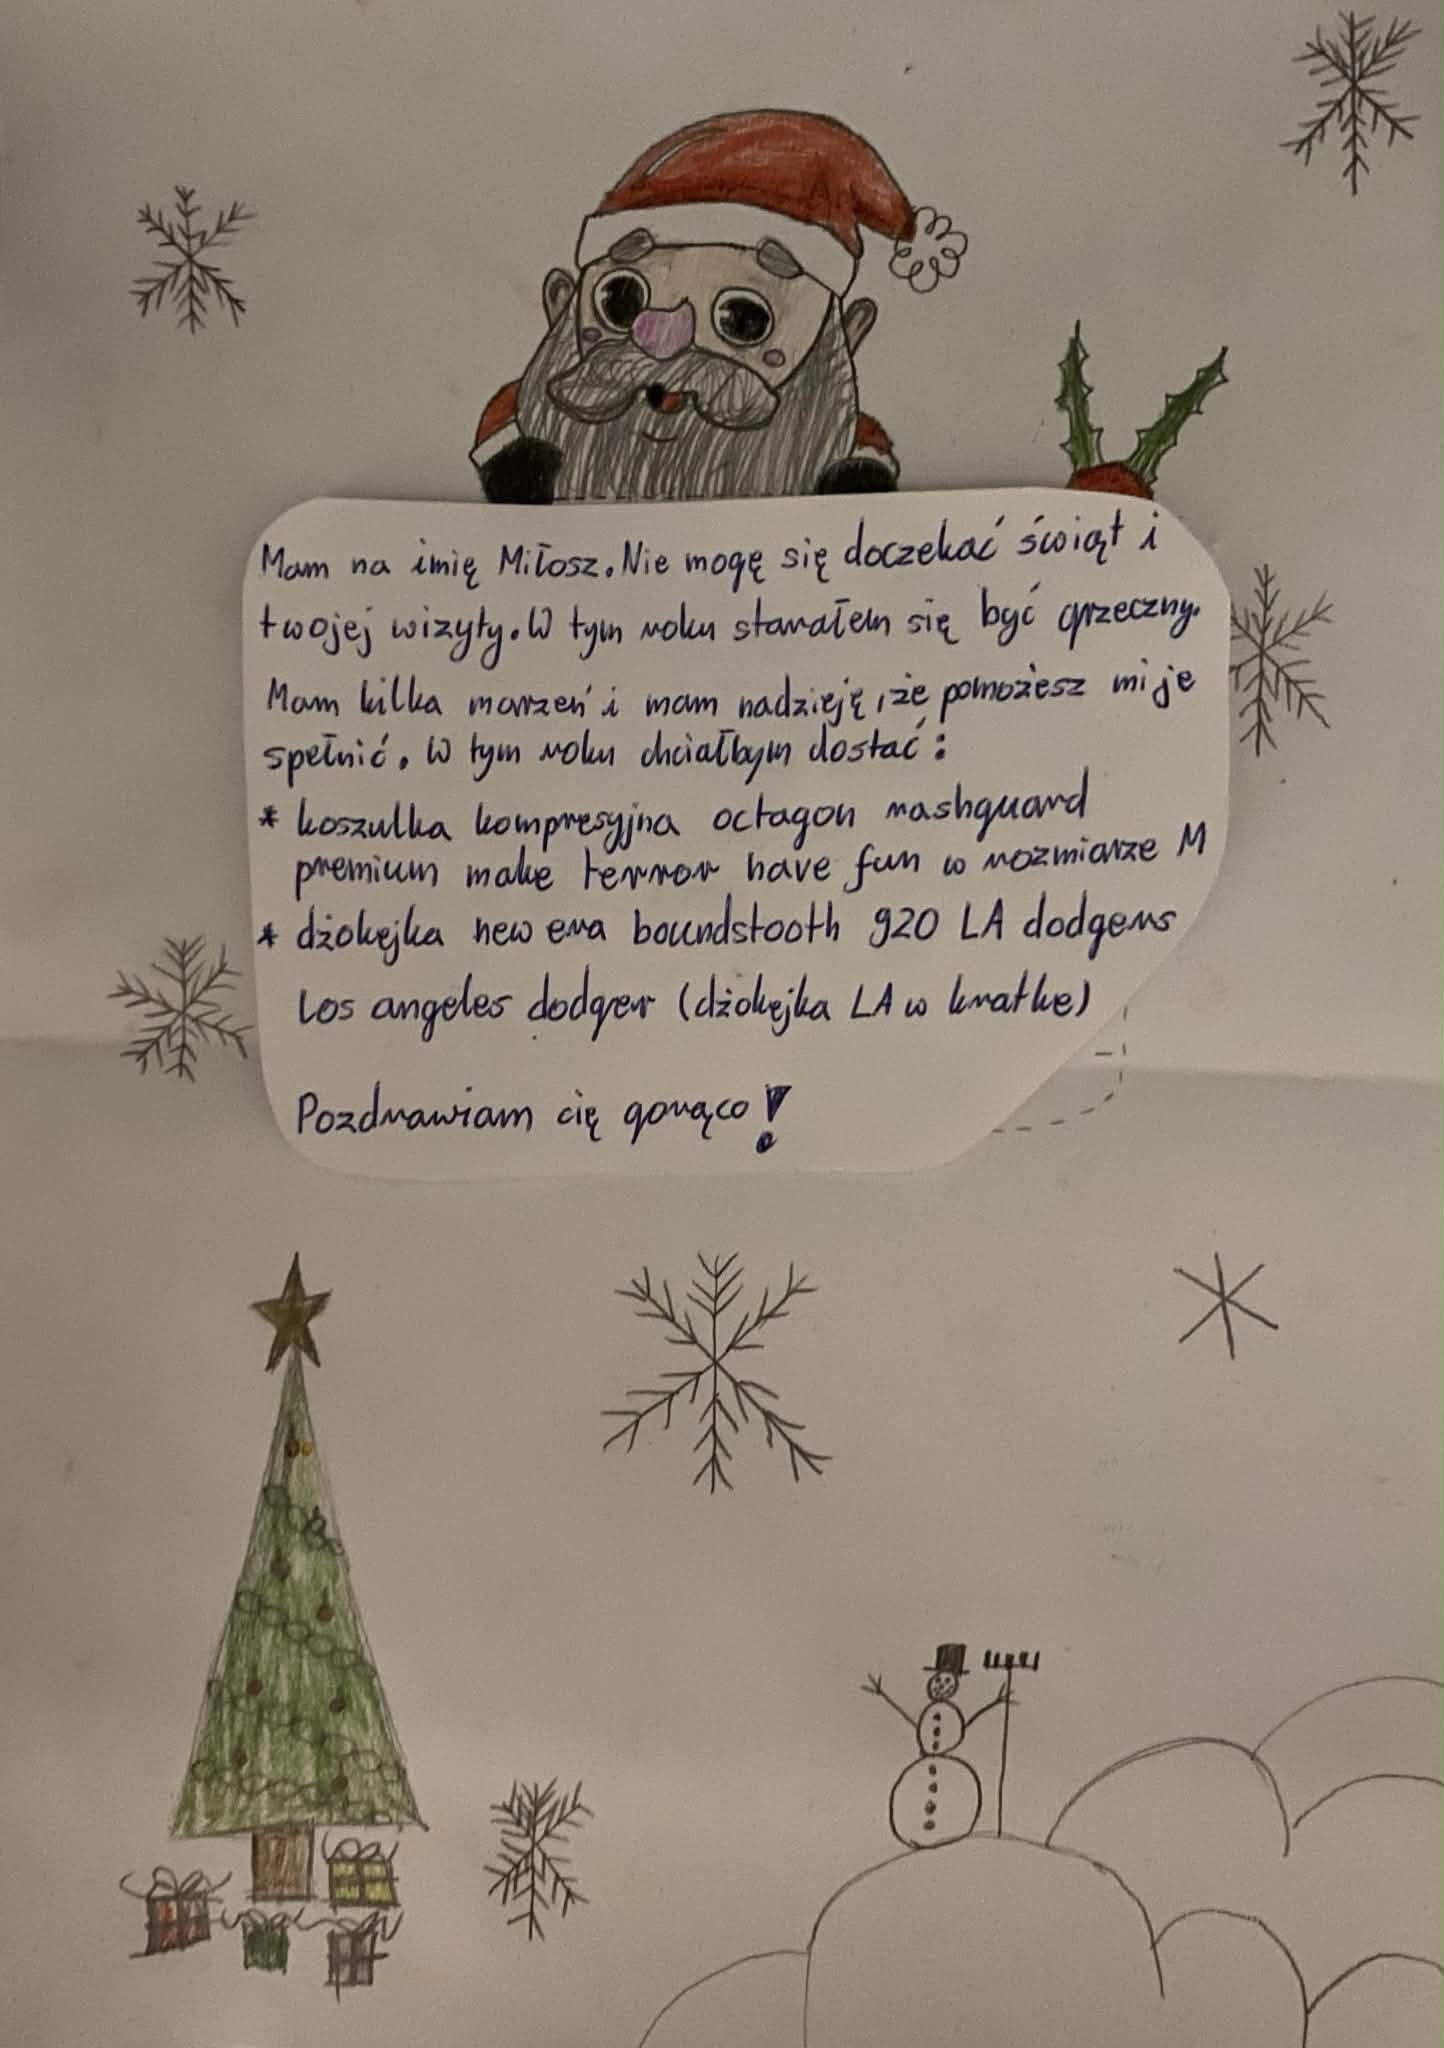 Mam na imię Miłosz. Nie mogę się doczekać świąt i
twojej wizyty. W tym roku starałem się być grzeczny.
Mam kilka marzeń i mam nadzieję, że pomożesz mi je
spełnić. W tym roku chciałbym dostać:
* koszulka kompresyjna octagon rashguard
premium make terror have fun w rozmiarze M
* dżokejka new era boundstooth 920 LA dodgers
Los angeles dodger (dżokejka LA w kratke)
Pozdrawiam cię gorąco!